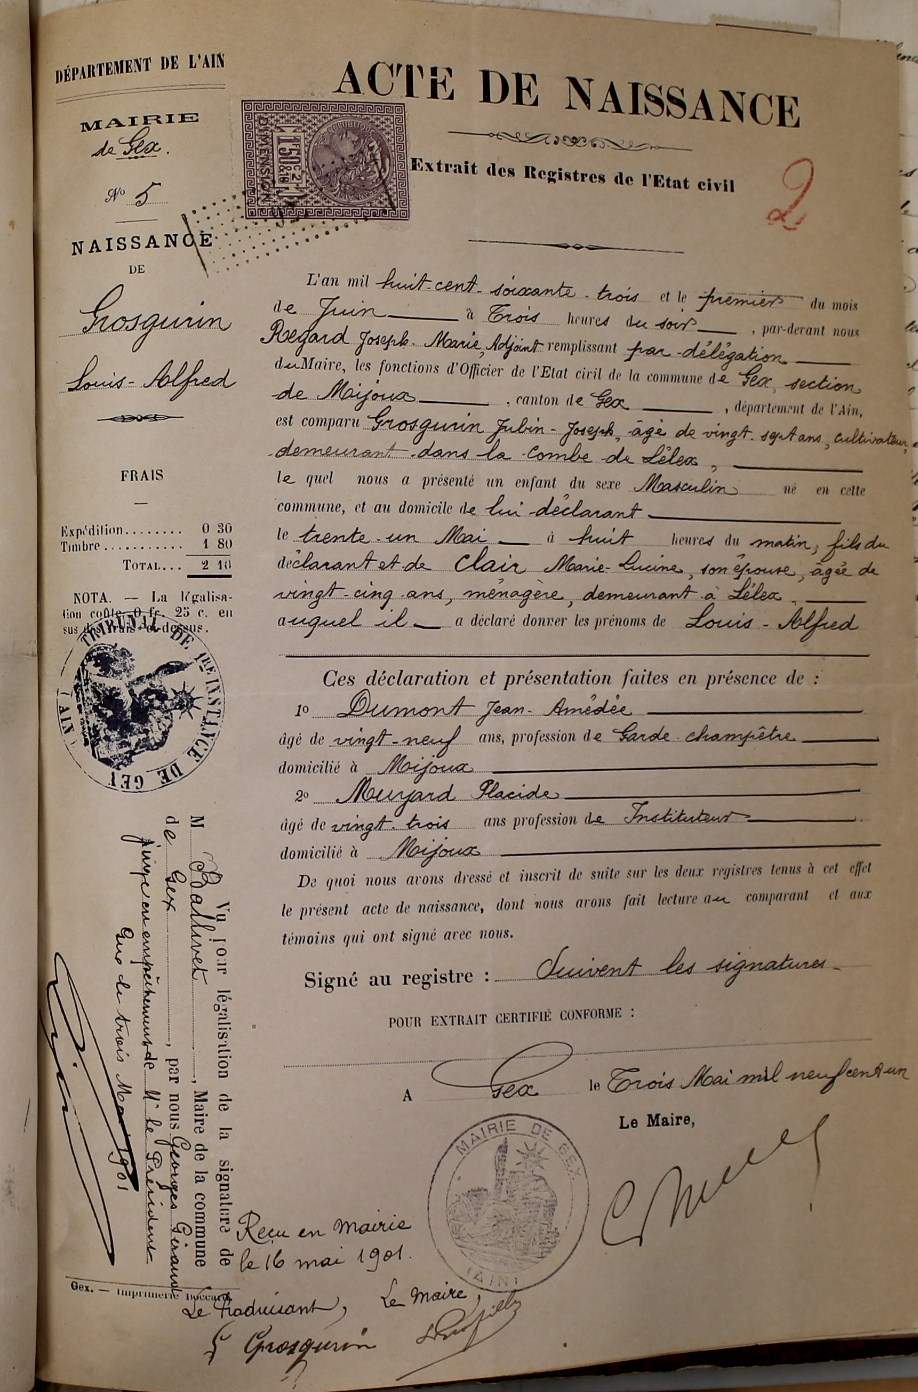 DÉPARTEMENT DE L'AIN
MAIRIE
de Gex.
N° 5
NAISSANCE
DE
Grosgurin
Louis-Alfred
FRAIS
Expédition........ 0 30
Timbre........... 1 80
TOTAL... 2 10
NOTA. — La légalisa-
tion coûte 0 fr. 25 c. en
sus des frais ci-dessus.
TRIBUNAL DE 1RE INSTANCE DE GEX (AIN)
Vu pour légalisation de la signature de
M Ballivet, Maire de la commune
de Gex, par nous Georges Giraud
juge en empêchement de Mr le Président
Gex le trois Mai 1901
Gex. — Imprimerie
ACTE DE NAISSANCE
Extrait des Registres de l'Etat civil
2
DIMENSION
1F 50C
L'an mil huit-cent-soixante-trois et le premier du mois
de Juin à Trois heures du soir, par-devant nous
Regard Joseph-Marie, Adjoint remplissant par délégation
du Maire, les fonctions d'Officier de l'Etat civil de la commune de Gex, section
de Mijoux, canton de Gex, département de l'Ain,
est comparu Grosgurin Jubin-Joseph, âgé de vingt-sept ans, cultivateur,
demeurant dans la combe de Lélex,
lequel nous a présenté un enfant du sexe Masculin né en cette
commune, et au domicile de lui déclarant
le trente-un Mai à huit heures du matin, fils du
déclarant et de Clair Marie-Lucine, son épouse, âgée de
vingt-cinq ans, ménagère, demeurant à Lélex,
auquel il a déclaré donner les prénoms de Louis-Alfred
Ces déclaration et présentation faites en présence de :
1° Dumont Jean-Amédée
âgé de vingt-neuf ans, profession de Garde-champêtre
domicilié à Mijoux
2° Meuzard Placide
âgé de vingt-trois ans profession de Instituteur
domicilié à Mijoux
De quoi nous avons dressé et inscrit de suite sur les deux registres tenus à cet effet
le présent acte de naissance, dont nous avons fait lecture au comparant et aux
témoins qui ont signé avec nous.
Signé au registre : Suivent les signatures
POUR EXTRAIT CERTIFIÉ CONFORME :
A Gex le Trois Mai mil neuf cent un
Le Maire,
MAIRIE DE GEX (AIN)
Reçu en Mairie
le 16 mai 1901.
Le Maire,
Grosgurin